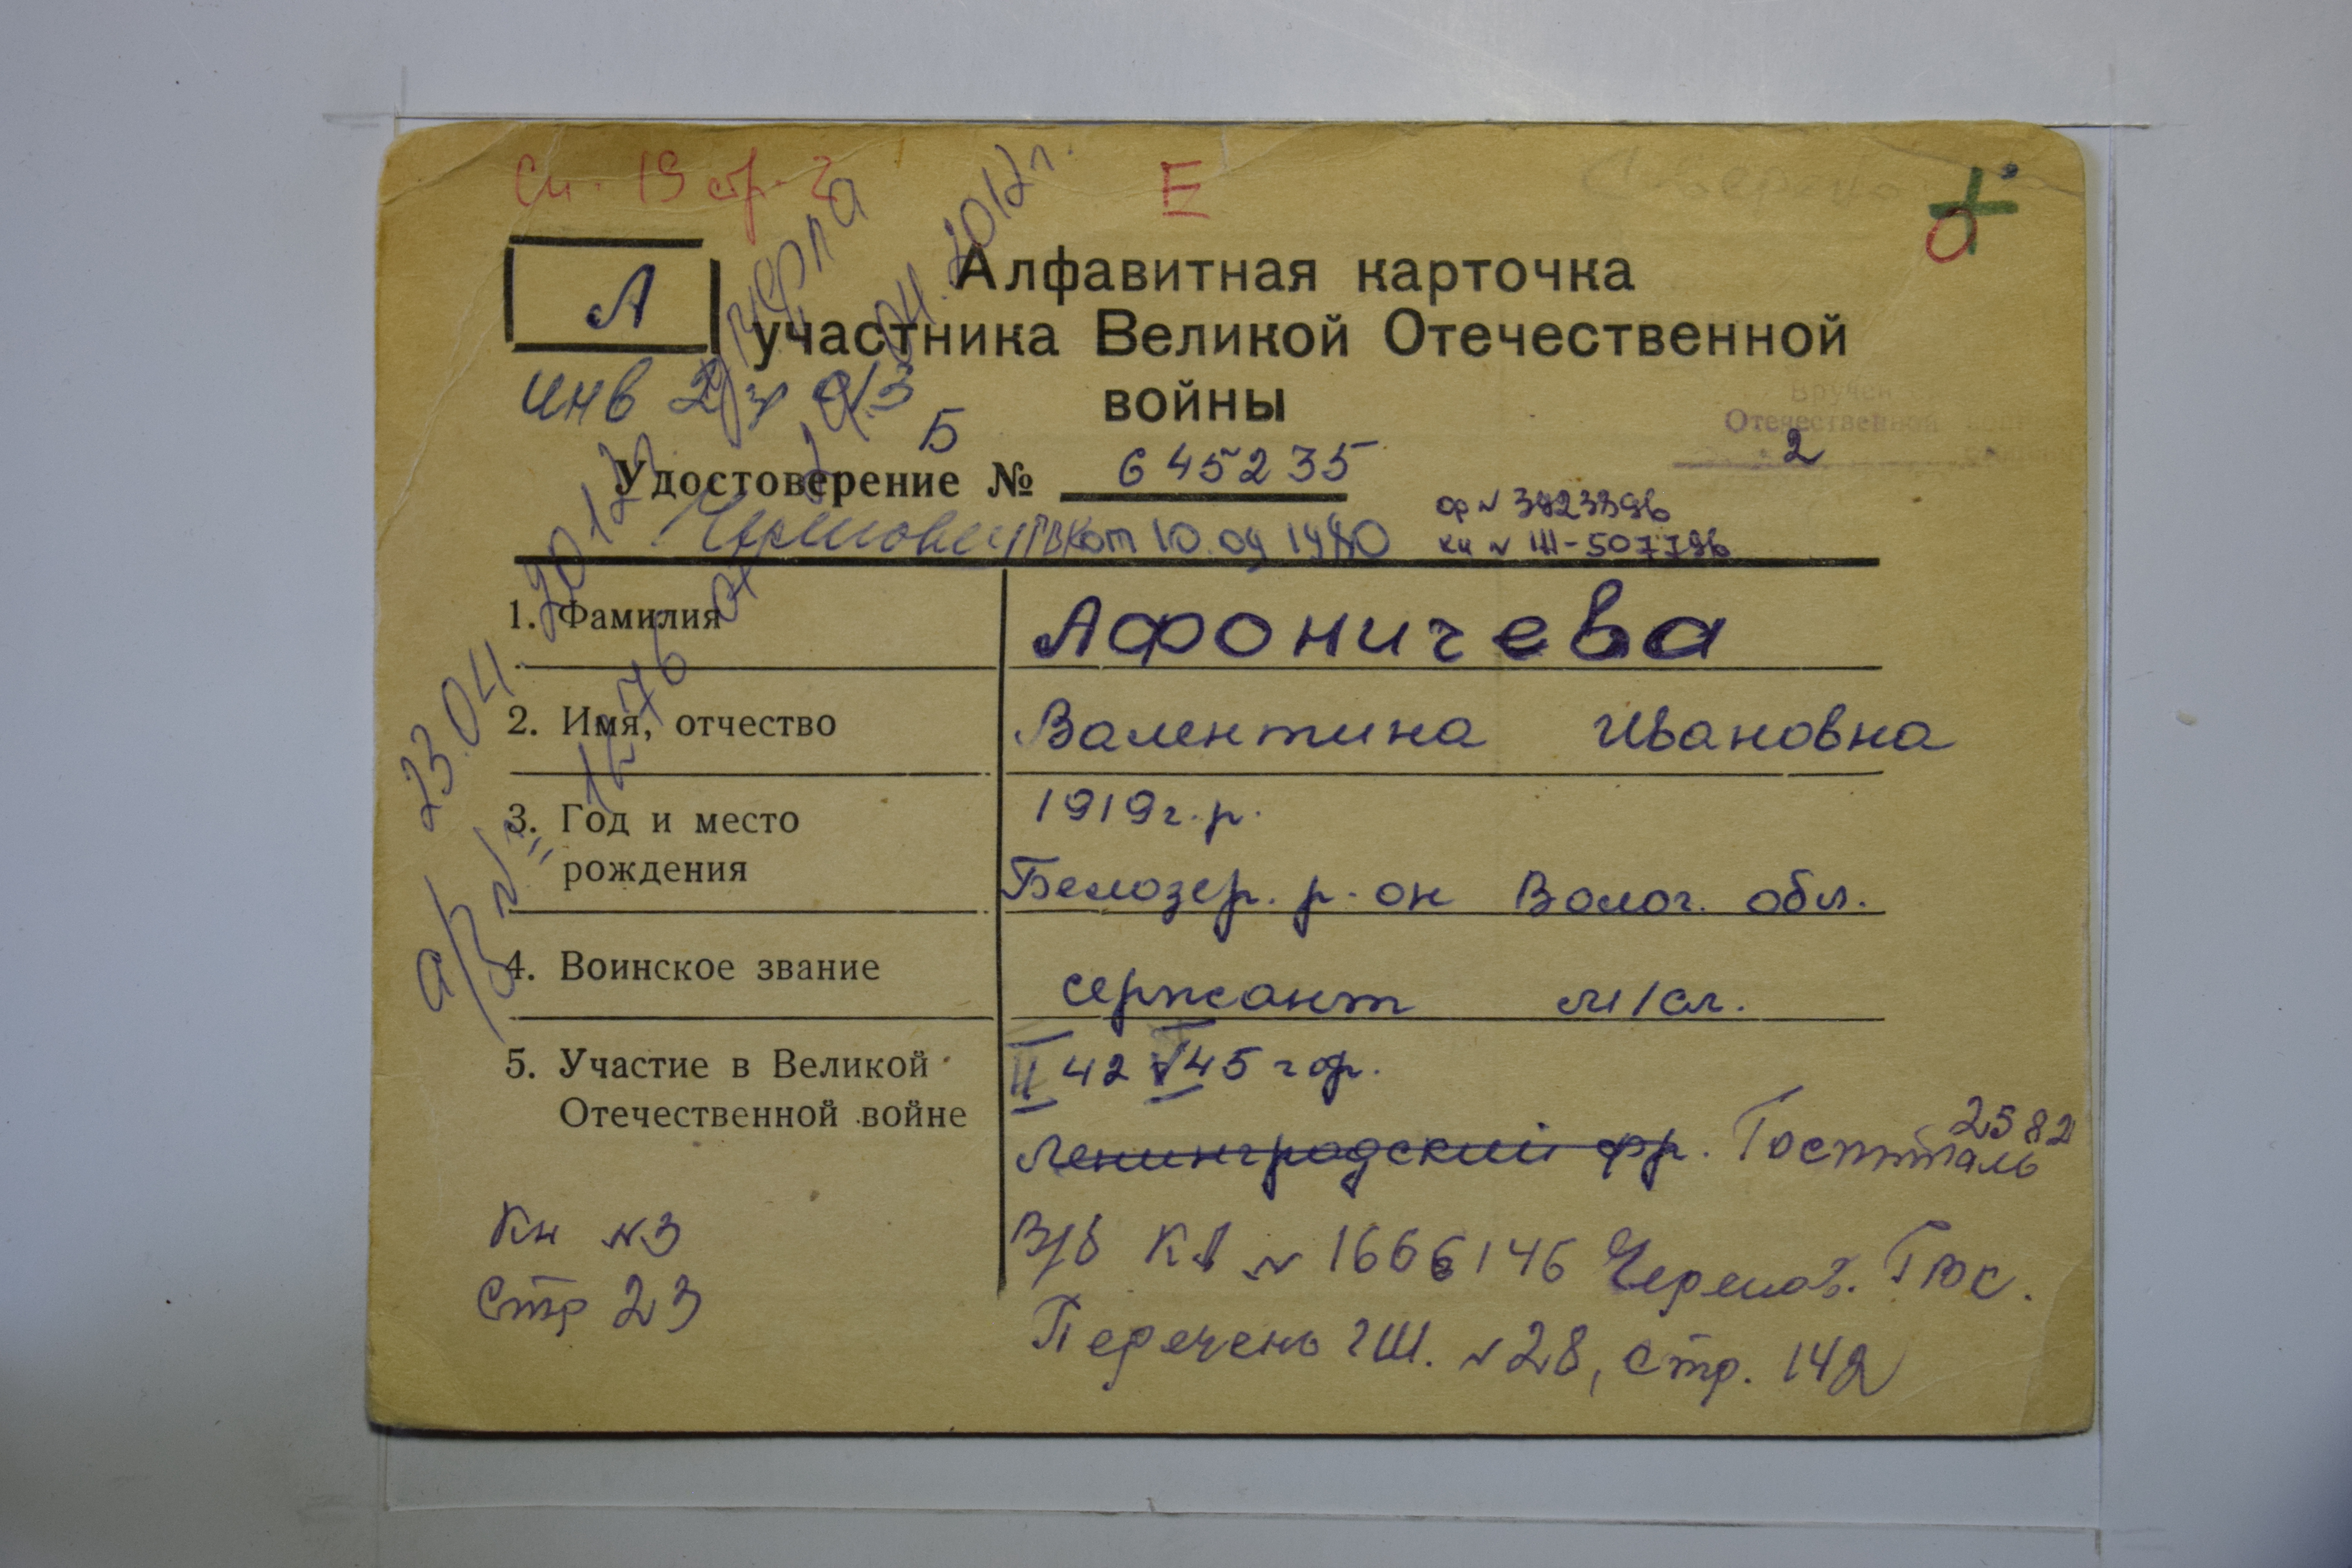 Сп. 19 стр. 2
Е
А
Алфавитная карточка
участника Великой Отечественной
войны
инв 2 гр
Б
Удостоверение № 645235
2
Вручен
Отечественной войны
ор № 3723396
от 10.09 1980
кн № Ш-507796
умерла
23.04 2012
а/з № 1276 от 24.04.2012г.
1. Фамилия Афоничева
2. Имя, отчество Валентина Ивановна
3. Год и место 1919г.р.
рождения Белозер. р-он Волог. обл.
4. Воинское звание сержант м/сл.
5. Участие в Великой II 42 V 45 гор.
Отечественной войне Ленинградский фр. Госпиталь 2582
Кн №3
стр 23
В/б № 1666146 Черепов. ГВК.
Перечень ГШ. №28, стр. 142